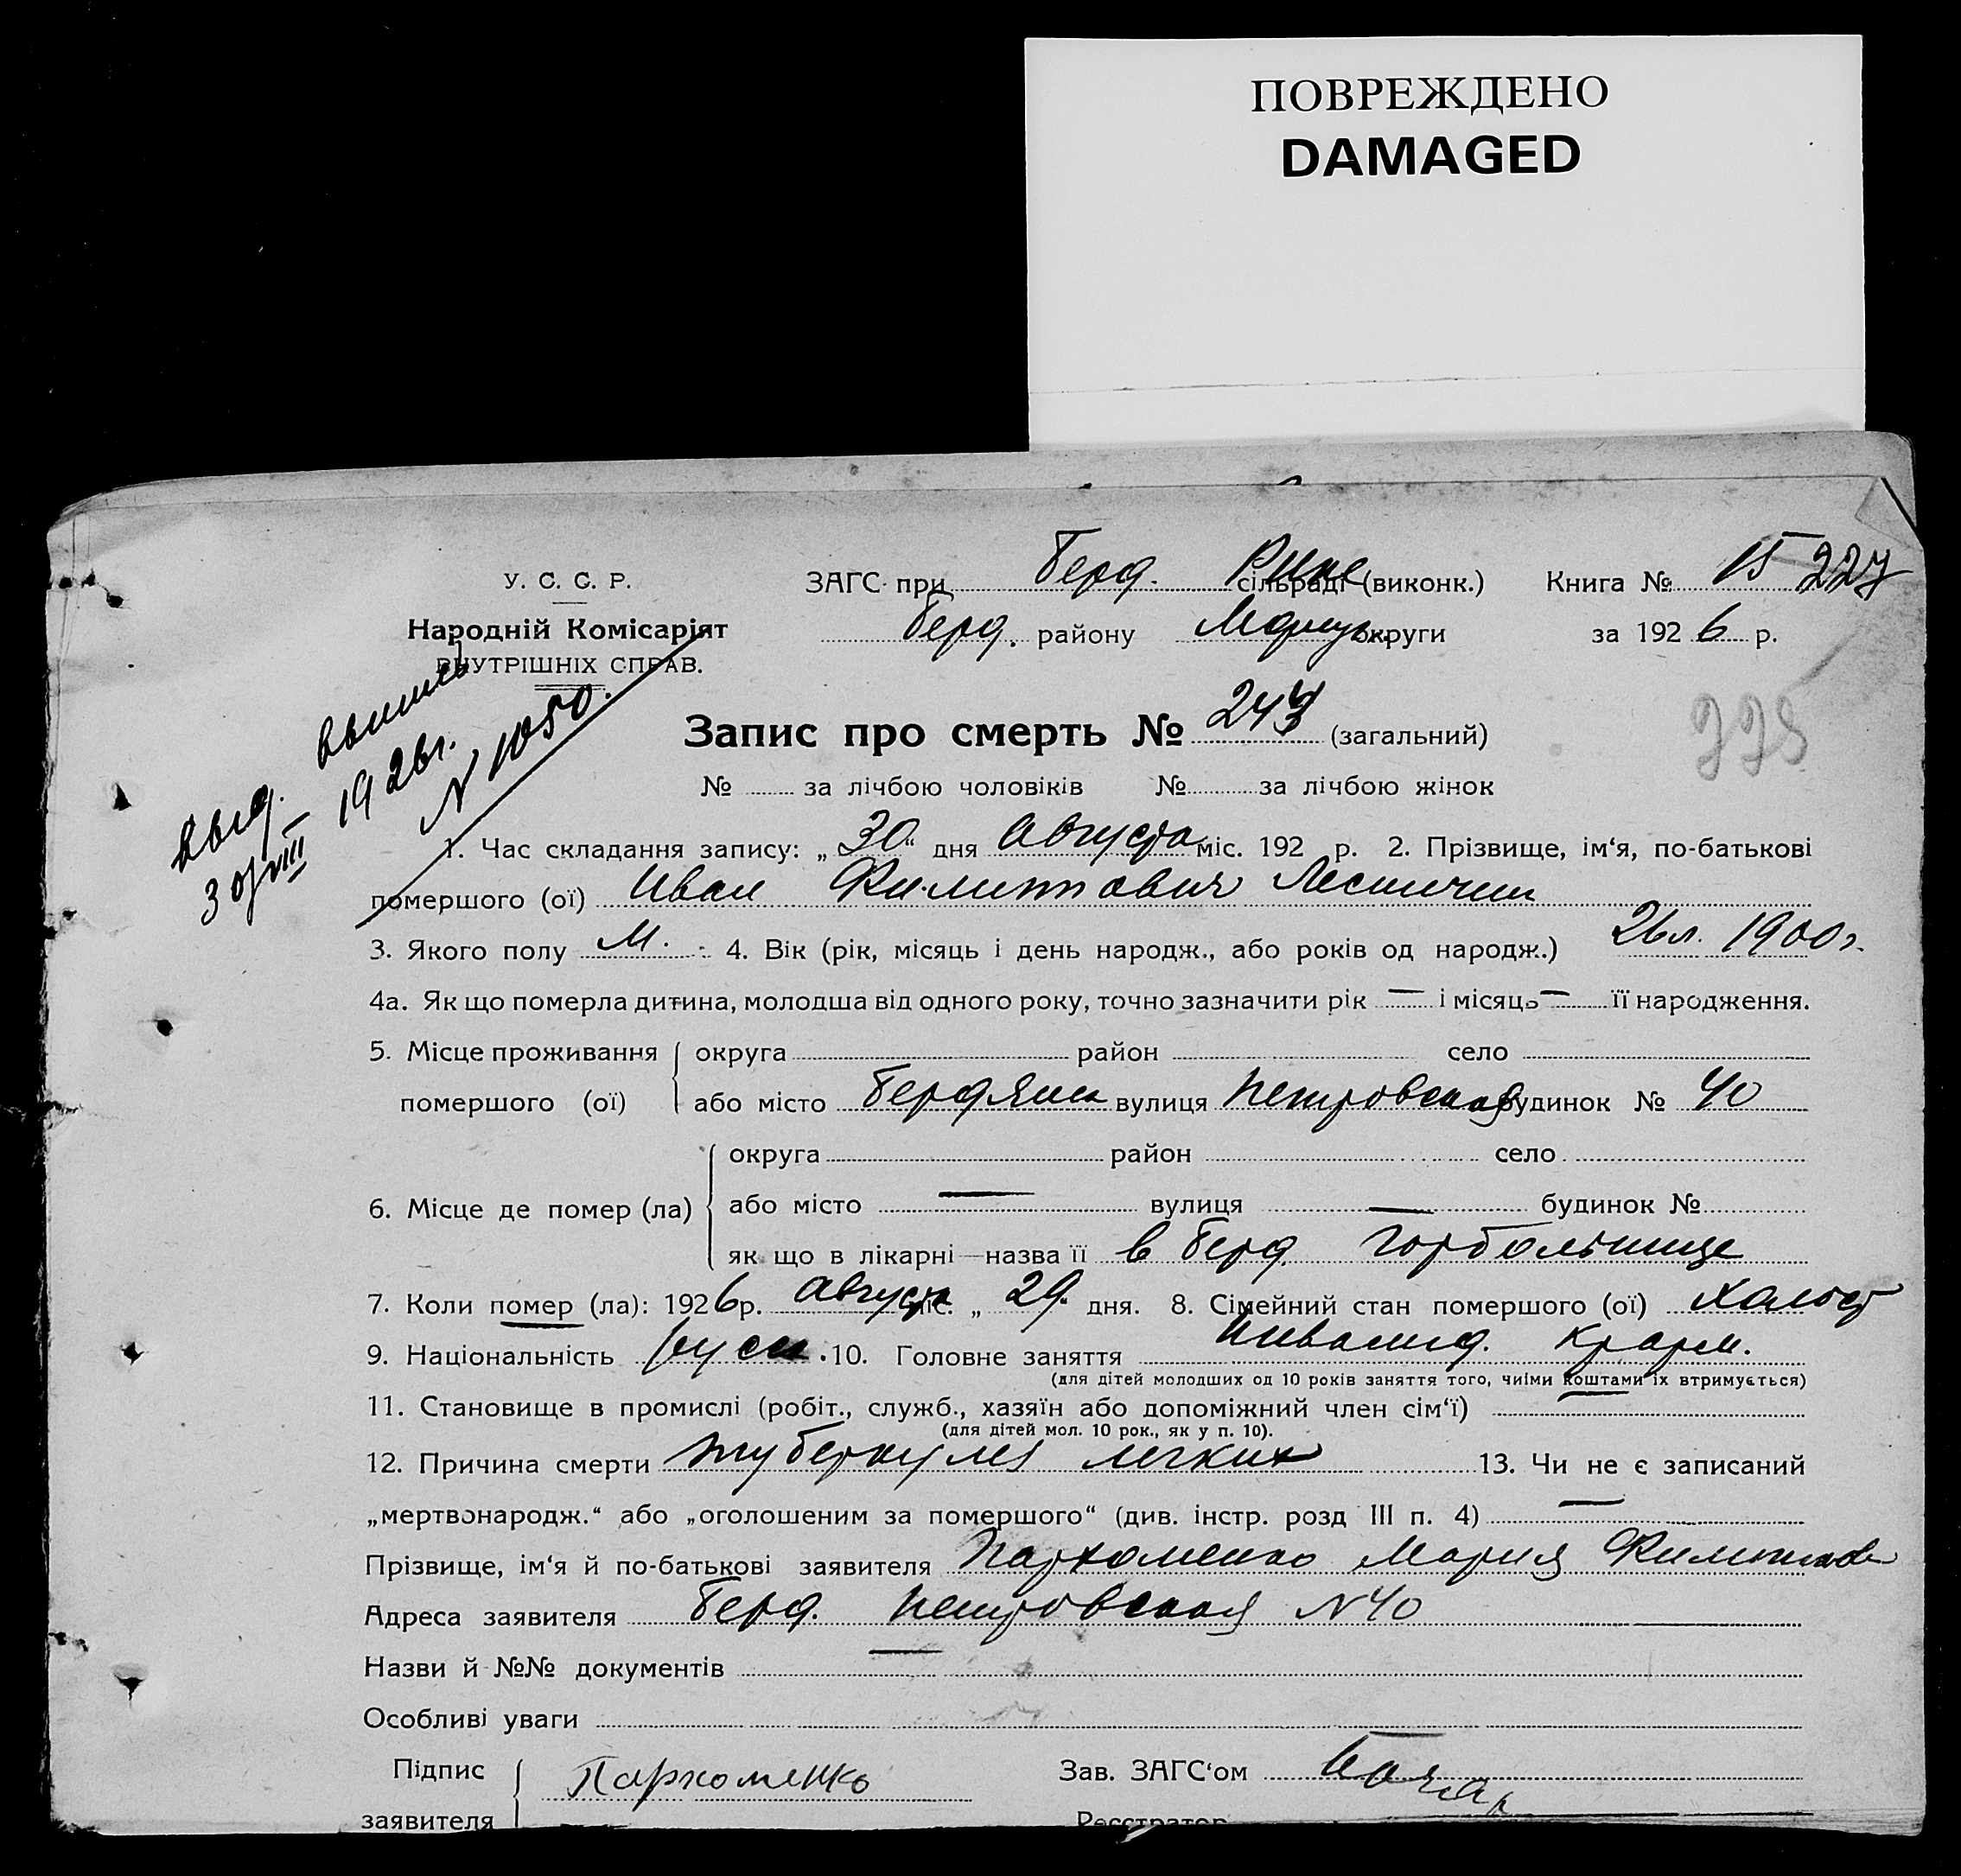 ПОВРЕЖДЕНО
DAMAGED
У. С. С. Р.
ЗАГС при Берд. Рике сільраді (виконк.) Книга № 15 227
Народній Комісаріят
Берд. району Мариуп. округи за 1926 р.
ВНУТРІШНІХ СПРАВ.
выд. выпись
30/VIII 1926г.
N 1050.
Запис про смерть № (загальний)
№ за лічбою чоловіків № за лічбою жінок
1. Час складання запису: „30“ дня Августа міс. 192 р. 2. Прізвище, ім‘я, по-батькові
помершого (ої) Иван Филиппович
3. Якого полу М. 4. Вік (рік, місяць і день народж., або років од народж.) 26л. 1900г.
4а. Як що померла дитина, молодша від одного року, точно зазначити рік — і місяць — її народження.
5. Місце проживання округа район село
помершого (ої) або місто Бердянск вулиця Петровская будинок № 40
округа район село
6. Місце де помер (ла) або місто — вулиця — будинок №
як що в лікарні—назва її в Берд. горбольнице
7. Коли помер (ла): 1926р. Августа міс. „29“ дня. 8. Сімейний стан помершого (ої) холост
9. Національність русск. 10. Головне заняття Инвалид. Кр. арм.
(для дітей молодших од 10 років заняття того, чиїми коштами їх втримується)
11. Становище в промислі (робіт., служб., хазяїн або допоміжний член сім‘ї) —
(для дітей мол. 10 рок., як у п. 10).
12. Причина смерти туберкулез легких 13. Чи не є записаний
„мертвонародж.“ або „оголошеним за помершого“ (див. інстр. розд III п. 4) —
Прізвище, ім‘я й по-батькові заявителя Пархоменко Мария Филиппов
Адреса заявителя Берд. Петровская N40
Назви й №№ документів —
Особливі уваги
Підпис Пархоменко Зав. ЗАГС‘ом
заявителя Реєстратор